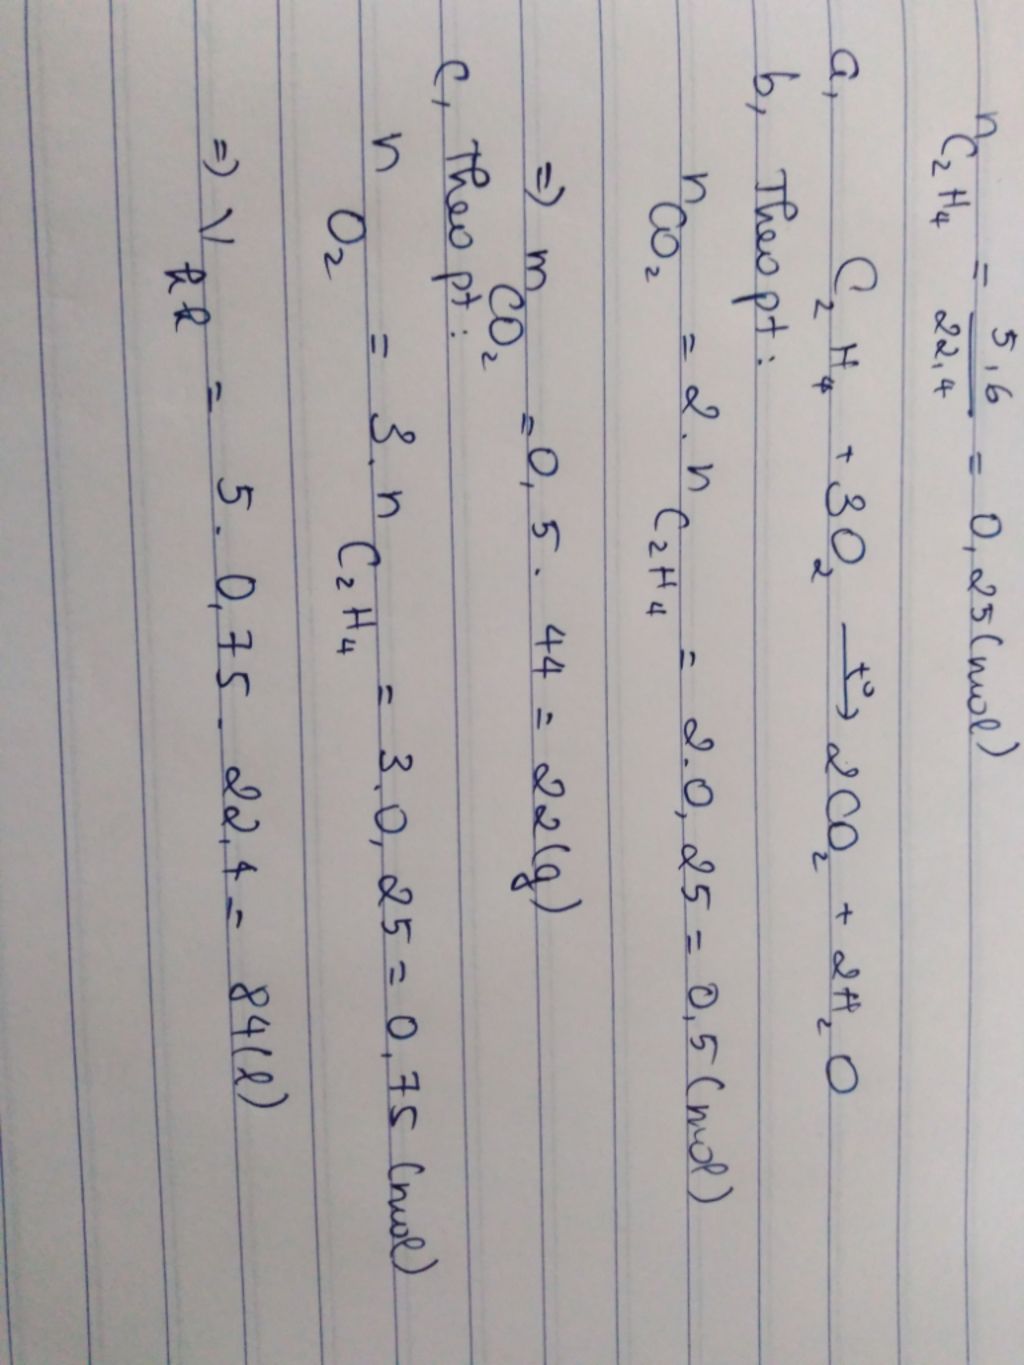 n C₂H₄ = 5,6 / 22,4 = 0,25 (mol)
a, C₂H₄ + 3O₂ —t°→ 2CO₂ + 2H₂O
b, Theo pt:
n CO₂ = 2. n C₂H₄ = 2.0,25 = 0,5 (mol)
=) m CO₂ = 0,5. 44 = 22(g)
c, Theo pt:
n O₂ = 3. n C₂H₄ = 3.0,25 = 0,75 (mol)
=) V kk = 5. 0,75. 22,4 = 84(l)